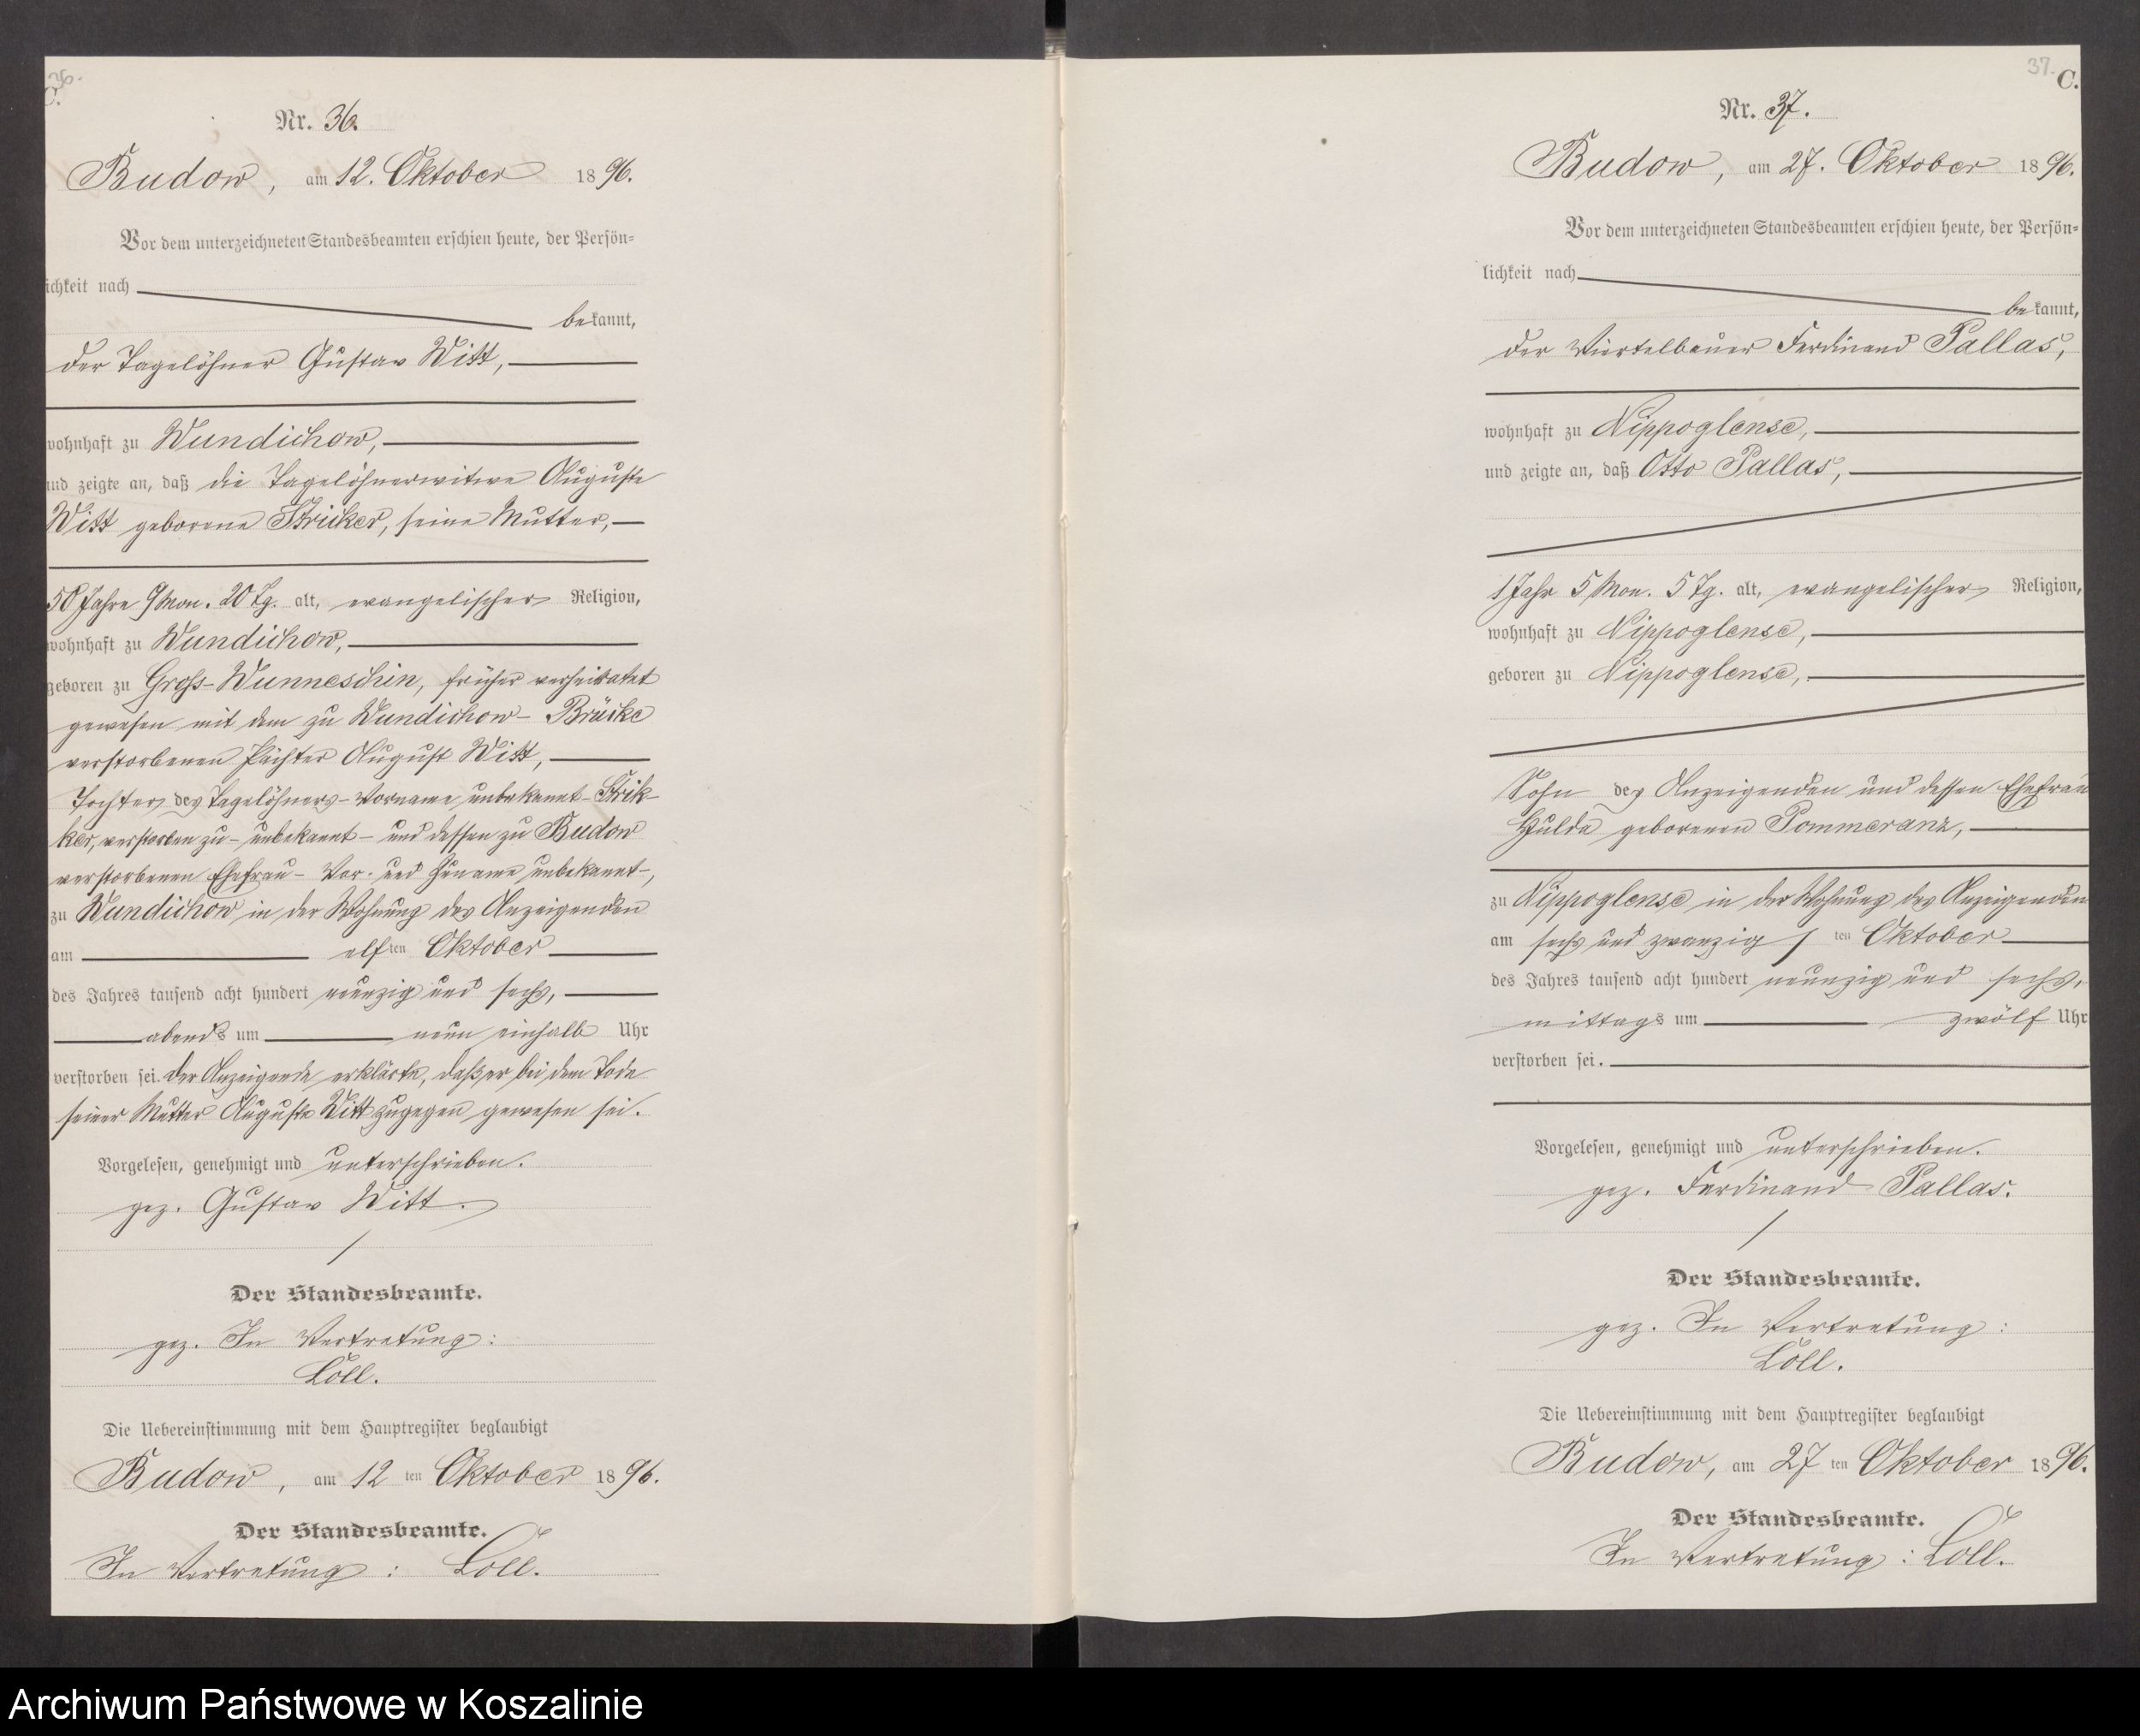 36.
C.
Nr. 36.
Budow, am 12. Oktober 1896.
Vor dem unterzeichneten Standesbeamten erschien heute, der Persön=
lichkeit nach
bekannt,
der Tagelöhner Gustav Witt,
wohnhaft zu Wundichow,
und zeigte an, daß die Tagelöhnerwitwe Auguste
Witt geborene Stricker, seine Mutter,
58 Jahre 9 Mon. 20 Tg. alt, evangelischer Religion,
wohnhaft zu Wundichow,
geboren zu Groß-Wunneschin, früher verheiratet
gewesen mit dem zu Wundichow-Brücke
verstorbenen Pächter August Witt,
Tochter des Tagelöhners - Vorname unbekannt - Strik-
ker, verstorben zu - unbekannt - und dessen zu Budow
verstorbenen Ehefrau - Vor- und Zuname unbekannt -,
zu Wundichow in der Wohnung des Anzeigenden
am elften Oktober
des Jahres tausend acht hundert neunzig und sechs,
abends um neun einhalb Uhr
verstorben sei. Der Anzeigende erklärte, daß er bei dem Tode
seiner Mutter Auguste Witt zugegen gewesen sei.
Vorgelesen, genehmigt und unterschrieben.
gez. Gustav Witt.
Der Standesbeamte.
gez. In Vertretung:
Löll.
Die Uebereinstimmung mit dem Hauptregister beglaubigt
Budow, am 12 ten Oktober 1896.
Der Standesbeamte.
In Vertretung: Löll.
37.
C.
Nr. 37.
Budow, am 27. Oktober 1896.
Vor dem unterzeichneten Standesbeamten erschien heute, der Persön=
lichkeit nach
bekannt,
der Viertelbauer Ferdinand Pallas,
wohnhaft zu Nippoglense,
und zeigte an, daß Otto Pallas,
1 Jahr 5 Mon. 5 Tg. alt, evangelischer Religion,
wohnhaft zu Nippoglense,
geboren zu Nippoglense,
Sohn des Anzeigenden und dessen Ehefrau
Hulda geborenen Pommeranz,
zu Nippoglense in der Wohnung des Anzeigenden
am sechs und zwanzig / ten Oktober
des Jahres tausend acht hundert neunzig und sechs,
mittags um zwölf Uhr
verstorben sei.
Vorgelesen, genehmigt und unterschrieben.
gez. Ferdinand Pallas.
Der Standesbeamte.
gez. In Vertretung:
Löll.
Die Uebereinstimmung mit dem Hauptregister beglaubigt
Budow, am 27 ten Oktober 1896.
Der Standesbeamte.
In Vertretung: Löll.
Archiwum Państwowe w Koszalinie